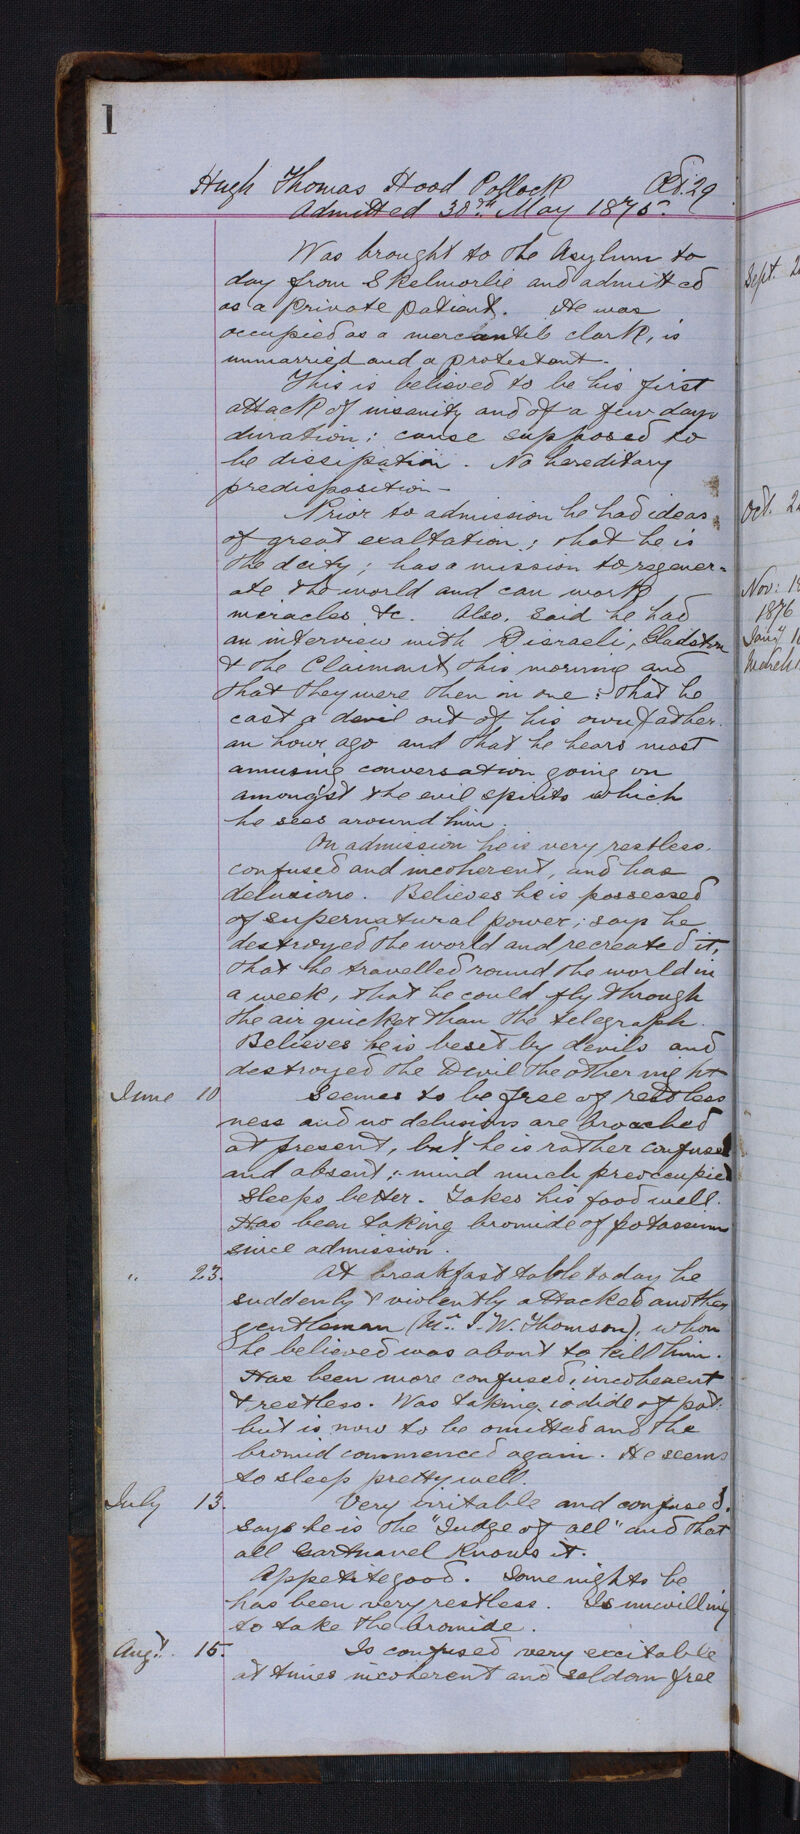 1
Hugh Thomas Hood Pollock Aet. 29
Admitted 30th May 1875.
Was brought to the Asylum to
day from Skelmorlie and admitted
as a private patient. He was
occupied as a mercantile clark, is
unmarried and a protestant.
This is believed to be his first
attack of insanity and of a few days
duration; cause supposed to
be dissipation. No hereditary
predisposition -
Prior to admission he had ideas
of great exaltation; that he is
the deity; has a mission to regener-
ate the world and can work
miracles &c. Also, said he had
an interview with Disraeli, Gladston
& the Claimant this morning and
that they were then in one: that he
cast a devil out of his own father
an hour ago and that he hears most
amusing conversation going on
amongst the evil spirits which
he sees around him.
On admission he is very restless,
confused and incoherent, and has
delusions. Believes he is possessed
of supernatural power; says he
destroyed the world and recreated it,
that he travelled round the world in
a week, that he could fly through
the air quicker than the telegraph.
Believes he is beset by devils and
destroyed the Devil the other night
June 10 Seems to be free of restless
ness and no delusions are broached
at present, but he is rather confused
and absent; mind much preoccupied
Sleeps better. Takes his food well.
Has been taking bromide of potassium
since admission.
" 23. At breakfast table today he
suddenly & violently attacked another
gentleman (Mr. J. W. Thomson), whom
he believed was about to kill him.
Has been more confused, incoherent
& restless. Was taking iodide of pot:
but is now to be omitted and the
bromid commenced again. He seems
to sleep pretty well
July 13. Very irritable and confused.
Says he is the "Judge of all" and that
all Gartnavel knows it.
Appetite good. Some nights he
has been very restless. Is unwilling
to take the bromide.
Augt. 15. Is confused very excitable
at times incoherent and seldom free
Sept. 2
Oct. 2
Nov: 18
1876
Jany 1
March